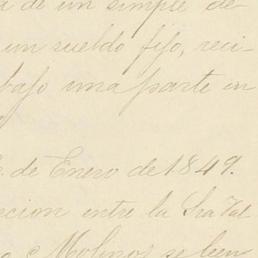 de un simple de-
un sueldo fijo, reci-
bajo una parte in
de Enero de 1849.
cion entre la Sra Tal
Molino, se leen